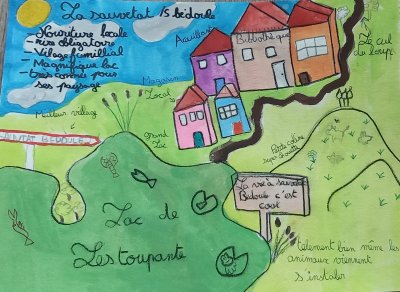 La sauvetat /s bédoule
- Nourriture locale
- rire obligatoire
- Village familial
- Magnifique lac
- tres connus pour
ses paysage
Accueillant
Bibliothèque
Le cul
de loup
Magasin
Local
Meilleur village
grand
Lac
BEDOULE
Petite colline
super chouette
La vie à sauvetat
Bédoule c'est
cool
Lac de
Lestoupante
tellement bien même les
animaux viennent
s'instaler